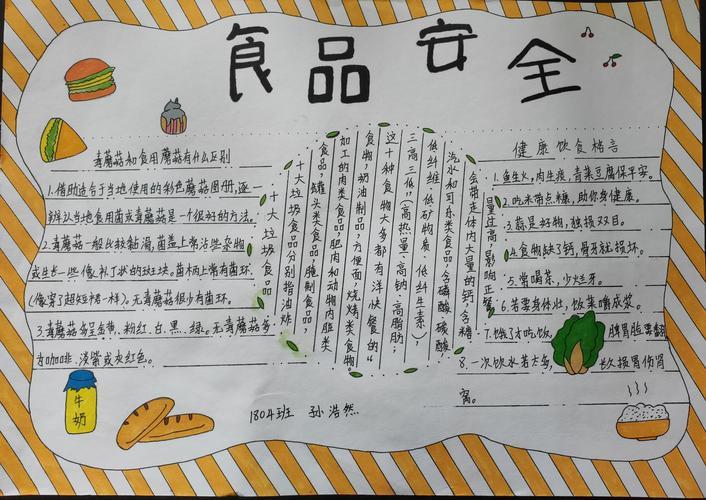 食品安全
毒蘑菇和食用蘑菇有什么区别
1.借助适合于当地使用的彩色蘑菇图册,逐一
辨认当地食用菌或毒蘑菇是一个很好的方法。
2.毒蘑菇一般比较黏滑,菌盖上常沾些杂物
或生长一些像补丁状的斑块。菌柄上常有菌环
(像穿了超短裙一样)。无毒蘑菇很少有菌环。
3.毒蘑菇多呈金黄、粉红、白、黑、绿。无毒蘑菇多
为咖啡、淡紫或灰红色。
十大垃圾食品
十大垃圾食品分别指油炸
食品,罐头类食品,腌制食品,
加工的肉类食品,肥肉和动物内脏类
食物,奶油制品,方便面,烧烤类食物。
这十种食物大多都有洋快餐的“
三高三低”(高热量、高钠、高脂肪;
低纤维、低矿物质、低纤生素)
汽水和可乐类食品,含磷酸,碳酸,
会带走体内大量的钙,含糖
量过高影响正餐
健康饮食格言
1.鱼生火,肉生痰,青菜豆腐保平安。
2.吃米带点糠,助你身健康。
3.蒜是好物,独损双目。
4.食物缺了钙,骨牙就损坏。
5.常喝茶,少烂牙。
6.若要身体壮,饭菜嚼成浆。
7.饿了才吃饭,脾胃脸
8.一次饮水若太多,长久损胃伤肾
窝。
牛奶
1804班 孙浩然